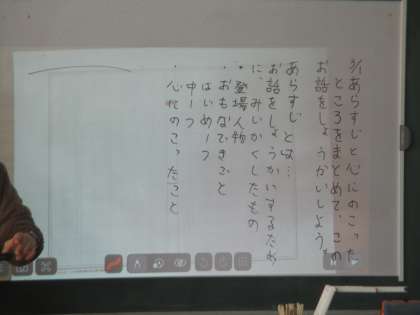 あらすじと心にのこった
ところをまとめて、この
お話をしょうかいしよう。
あらすじとは…
お話をしょうかいするため
に、みじかくしたもの
・登場人物
・おもなできごと
はじめ－つ
中－つ
・心にのこったこと